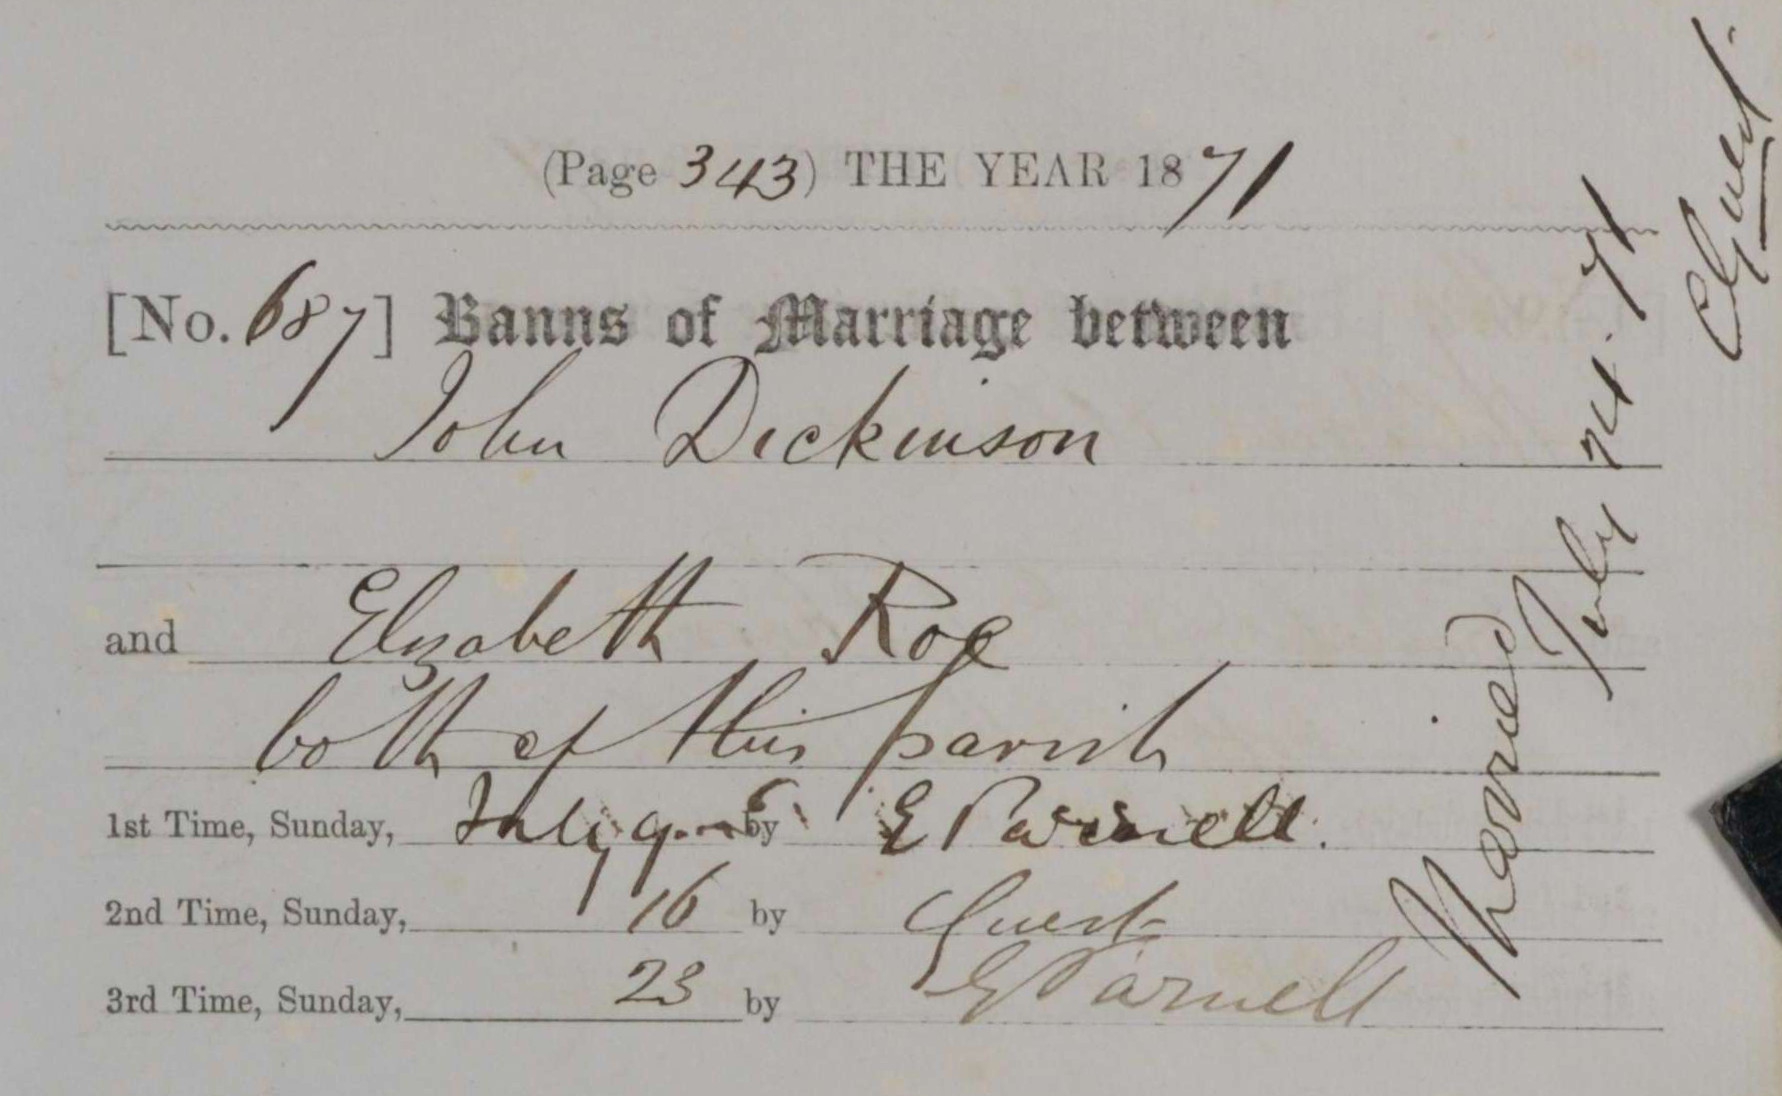 (Page 343) THE YEAR 1871
[No. 687] Banns of Marriage between
John Dickinson
and Elizabeth Roe
both of this parish
1st Time, Sunday, July 9 by E Parnell.
2nd Time, Sunday, 16 by Guest
3rd Time, Sunday, 23 by E Parnell
Married July 24. 71
Guest